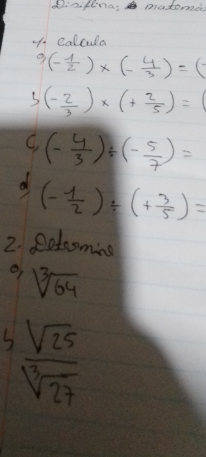 Disiplina: matemá
1. Calcula
a) (-1/2) × (-4/3) = (-
b) (-2/3) × (+2/5) = (
c) (-4/3) ÷ (-5/7) =
d) (-1/2) ÷ (+3/5) =
2. Determine
a) ∛64
b) √25/∛27